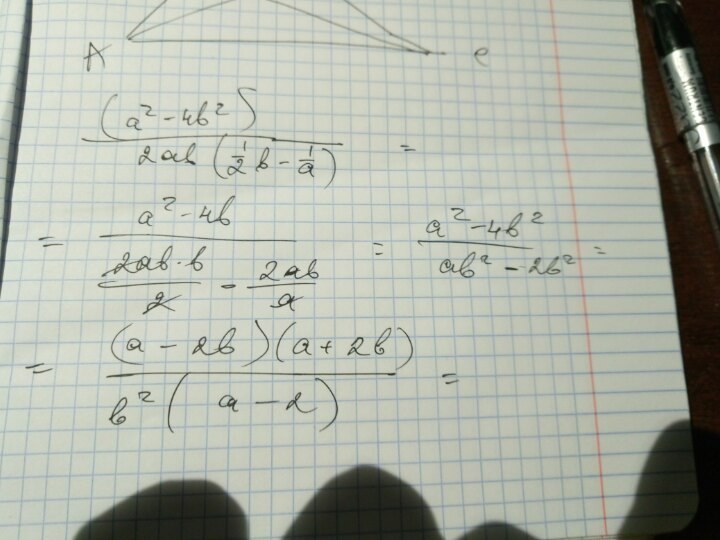 A c
(a² - 4b²)
2ab (1/2 b - 1/a) =
= (a² - 4b) / (2ab·b/2 - 2ab/a) = (a² - 4b²) / (ab² - 2b²) =
= (a - 2b)(a + 2b) / b²(a - 2) =